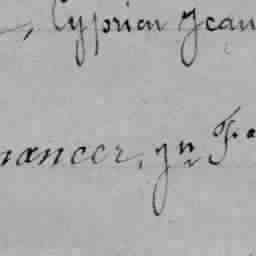 , Cyprien Jean
nancer, yn Fe